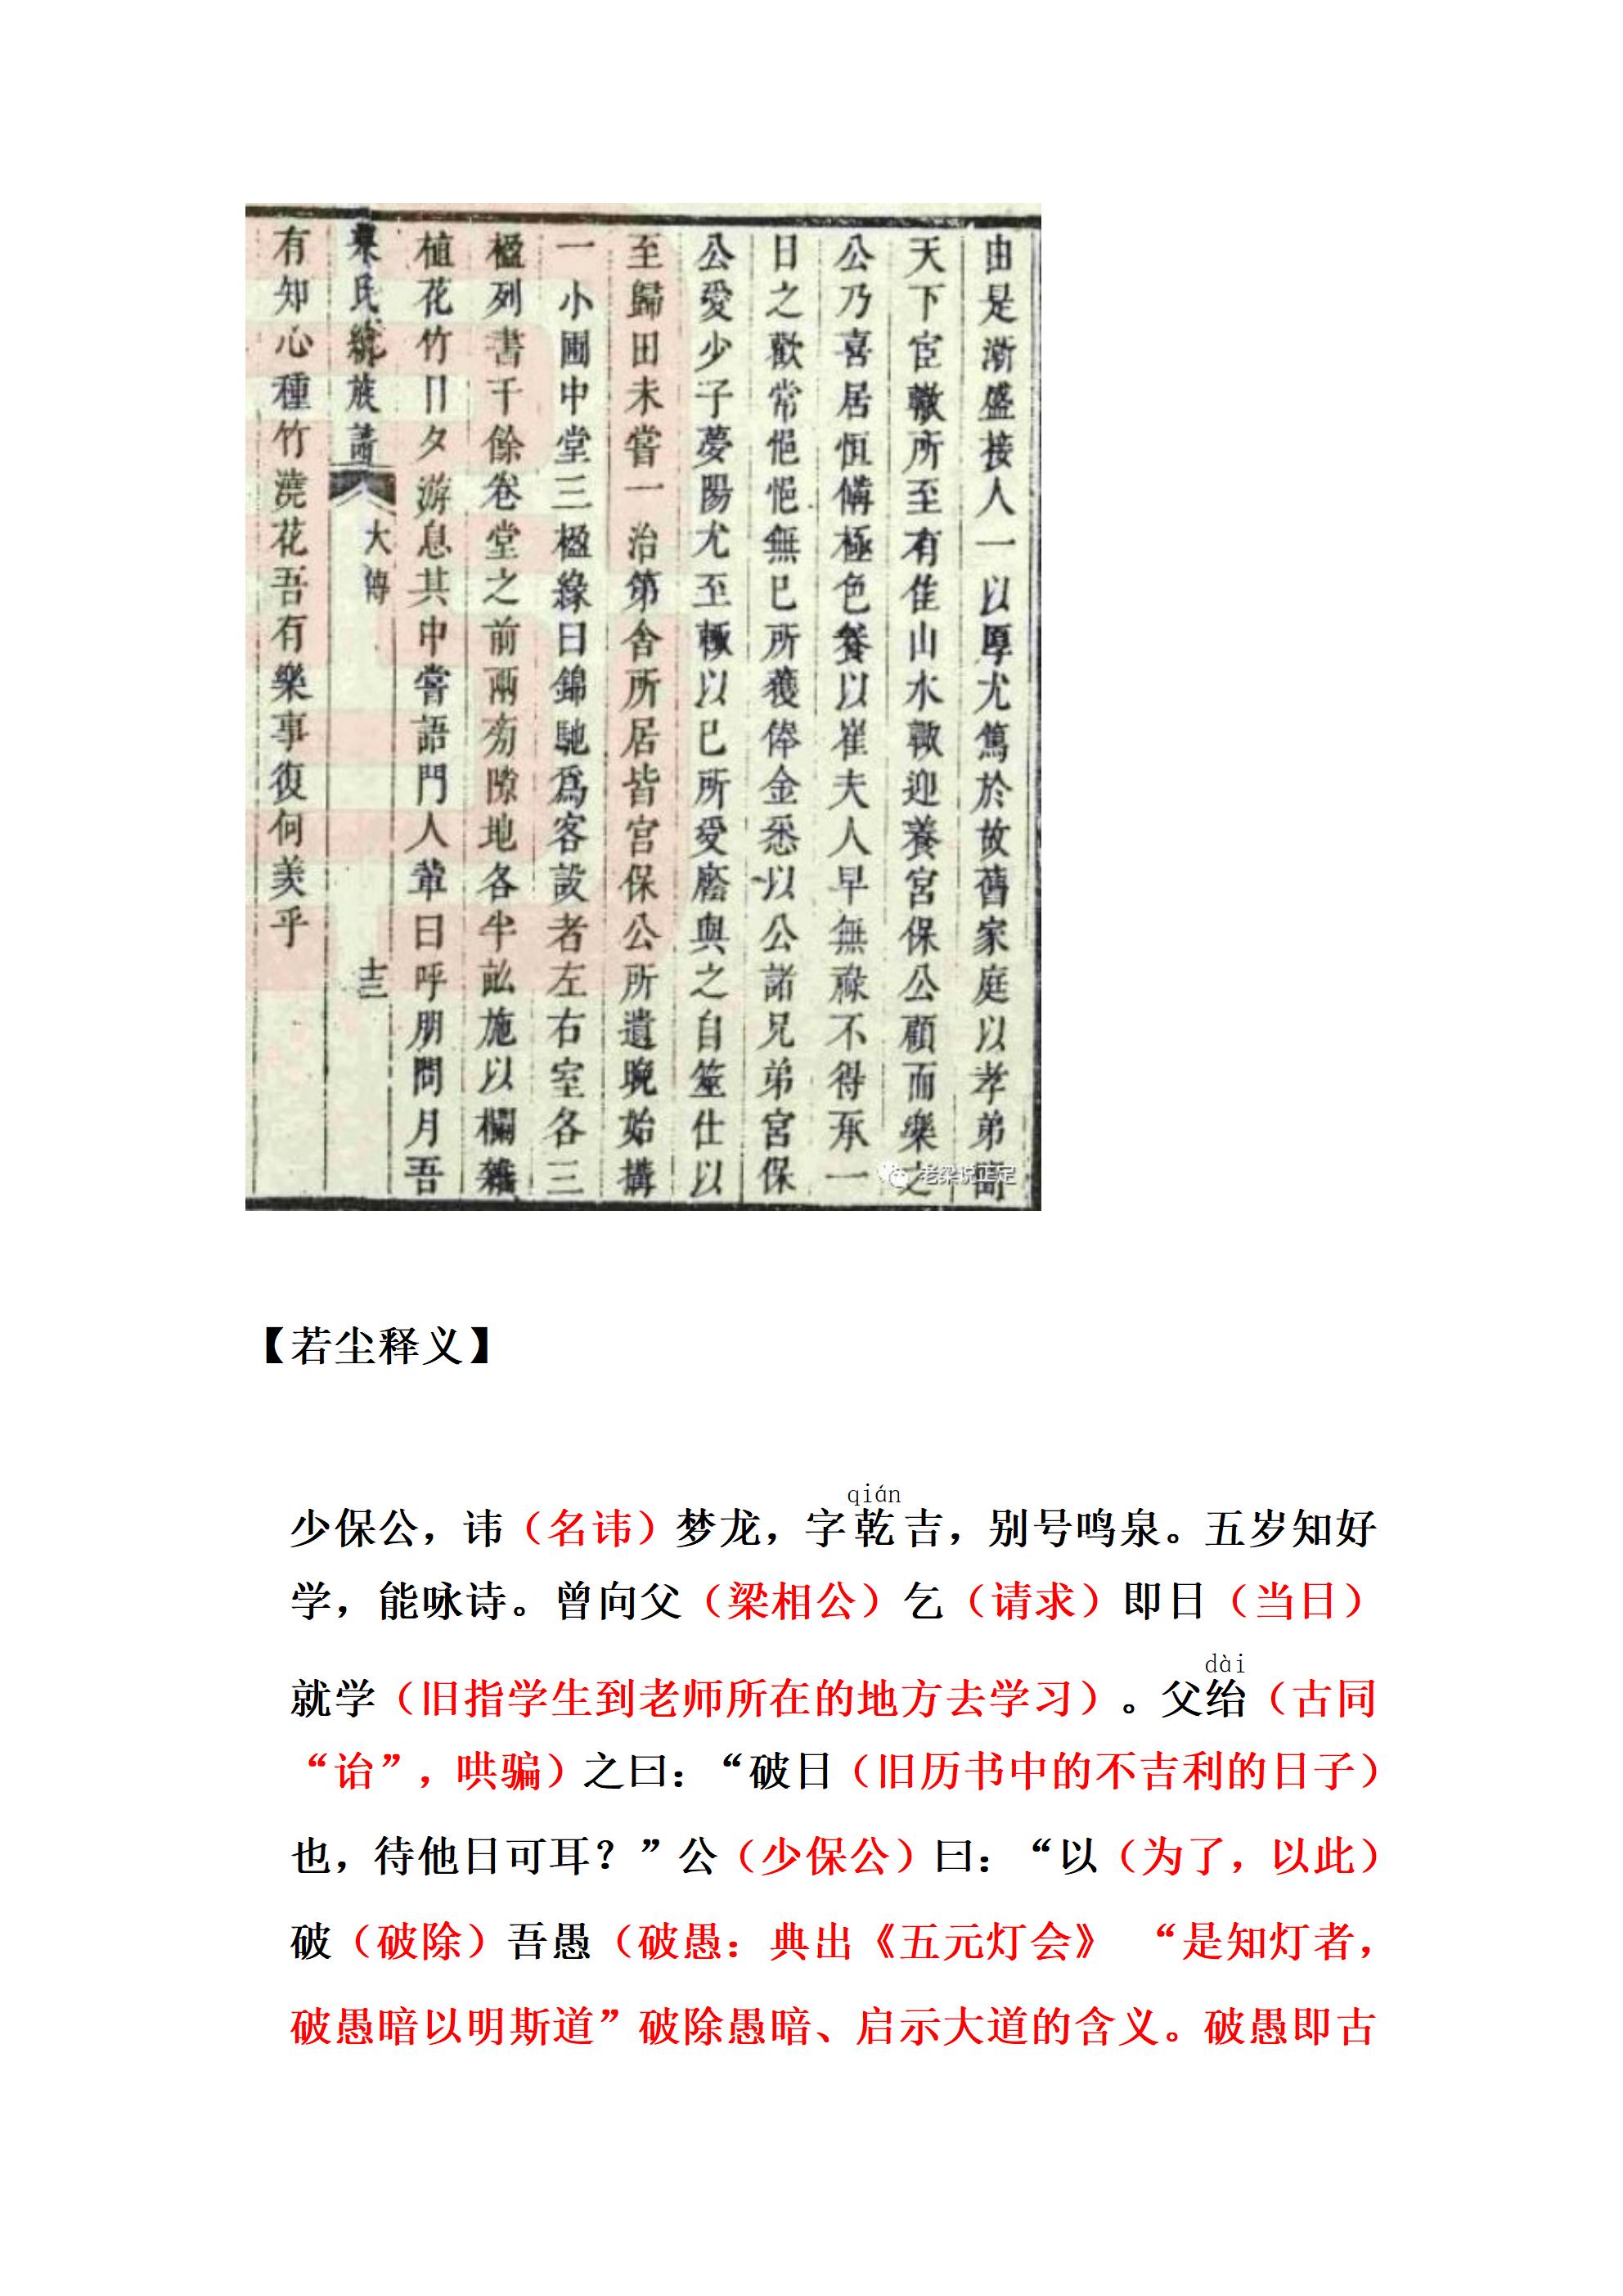 由是漸盛接人一以厚尤篤於故舊家庭以孝弟
天下宦轍所至有佳山水輙迎養宮保公顧而樂之
公乃喜居恒備極色養以崔夫人早無祿不得承一
日之歡常悒悒無已所獲俸金悉以公諸兄弟宮保
公愛少子夢陽尤至輙以已所愛廕與之自筮仕以
至歸田未嘗一治第舍所居皆宮保公所遺晚始搆
一小圃中堂三楹綠曰錦馳爲客設者左右室各三
楹列書千餘卷堂之前兩旁隙地各半畝施以欄雜
植花竹日夕游息其中嘗語門人輩曰呼朋問月吾
梁氏統族譜 大傳 十三
有知心種竹澆花吾有樂事復何羨乎
老梁说正定
【若尘释义】
qián
少保公，讳（名讳）梦龙，字乾吉，别号鸣泉。五岁知好
学，能咏诗。曾向父（梁相公）乞（请求）即日（当日）
dài
就学（旧指学生到老师所在的地方去学习）。父绐（古同
“诒”，哄骗）之曰：“破日（旧历书中的不吉利的日子）
也，待他日可耳？”公（少保公）曰：“以（为了，以此）
破（破除）吾愚（破愚：典出《五元灯会》 “是知灯者，
破愚暗以明斯道”破除愚暗、启示大道的含义。破愚即古